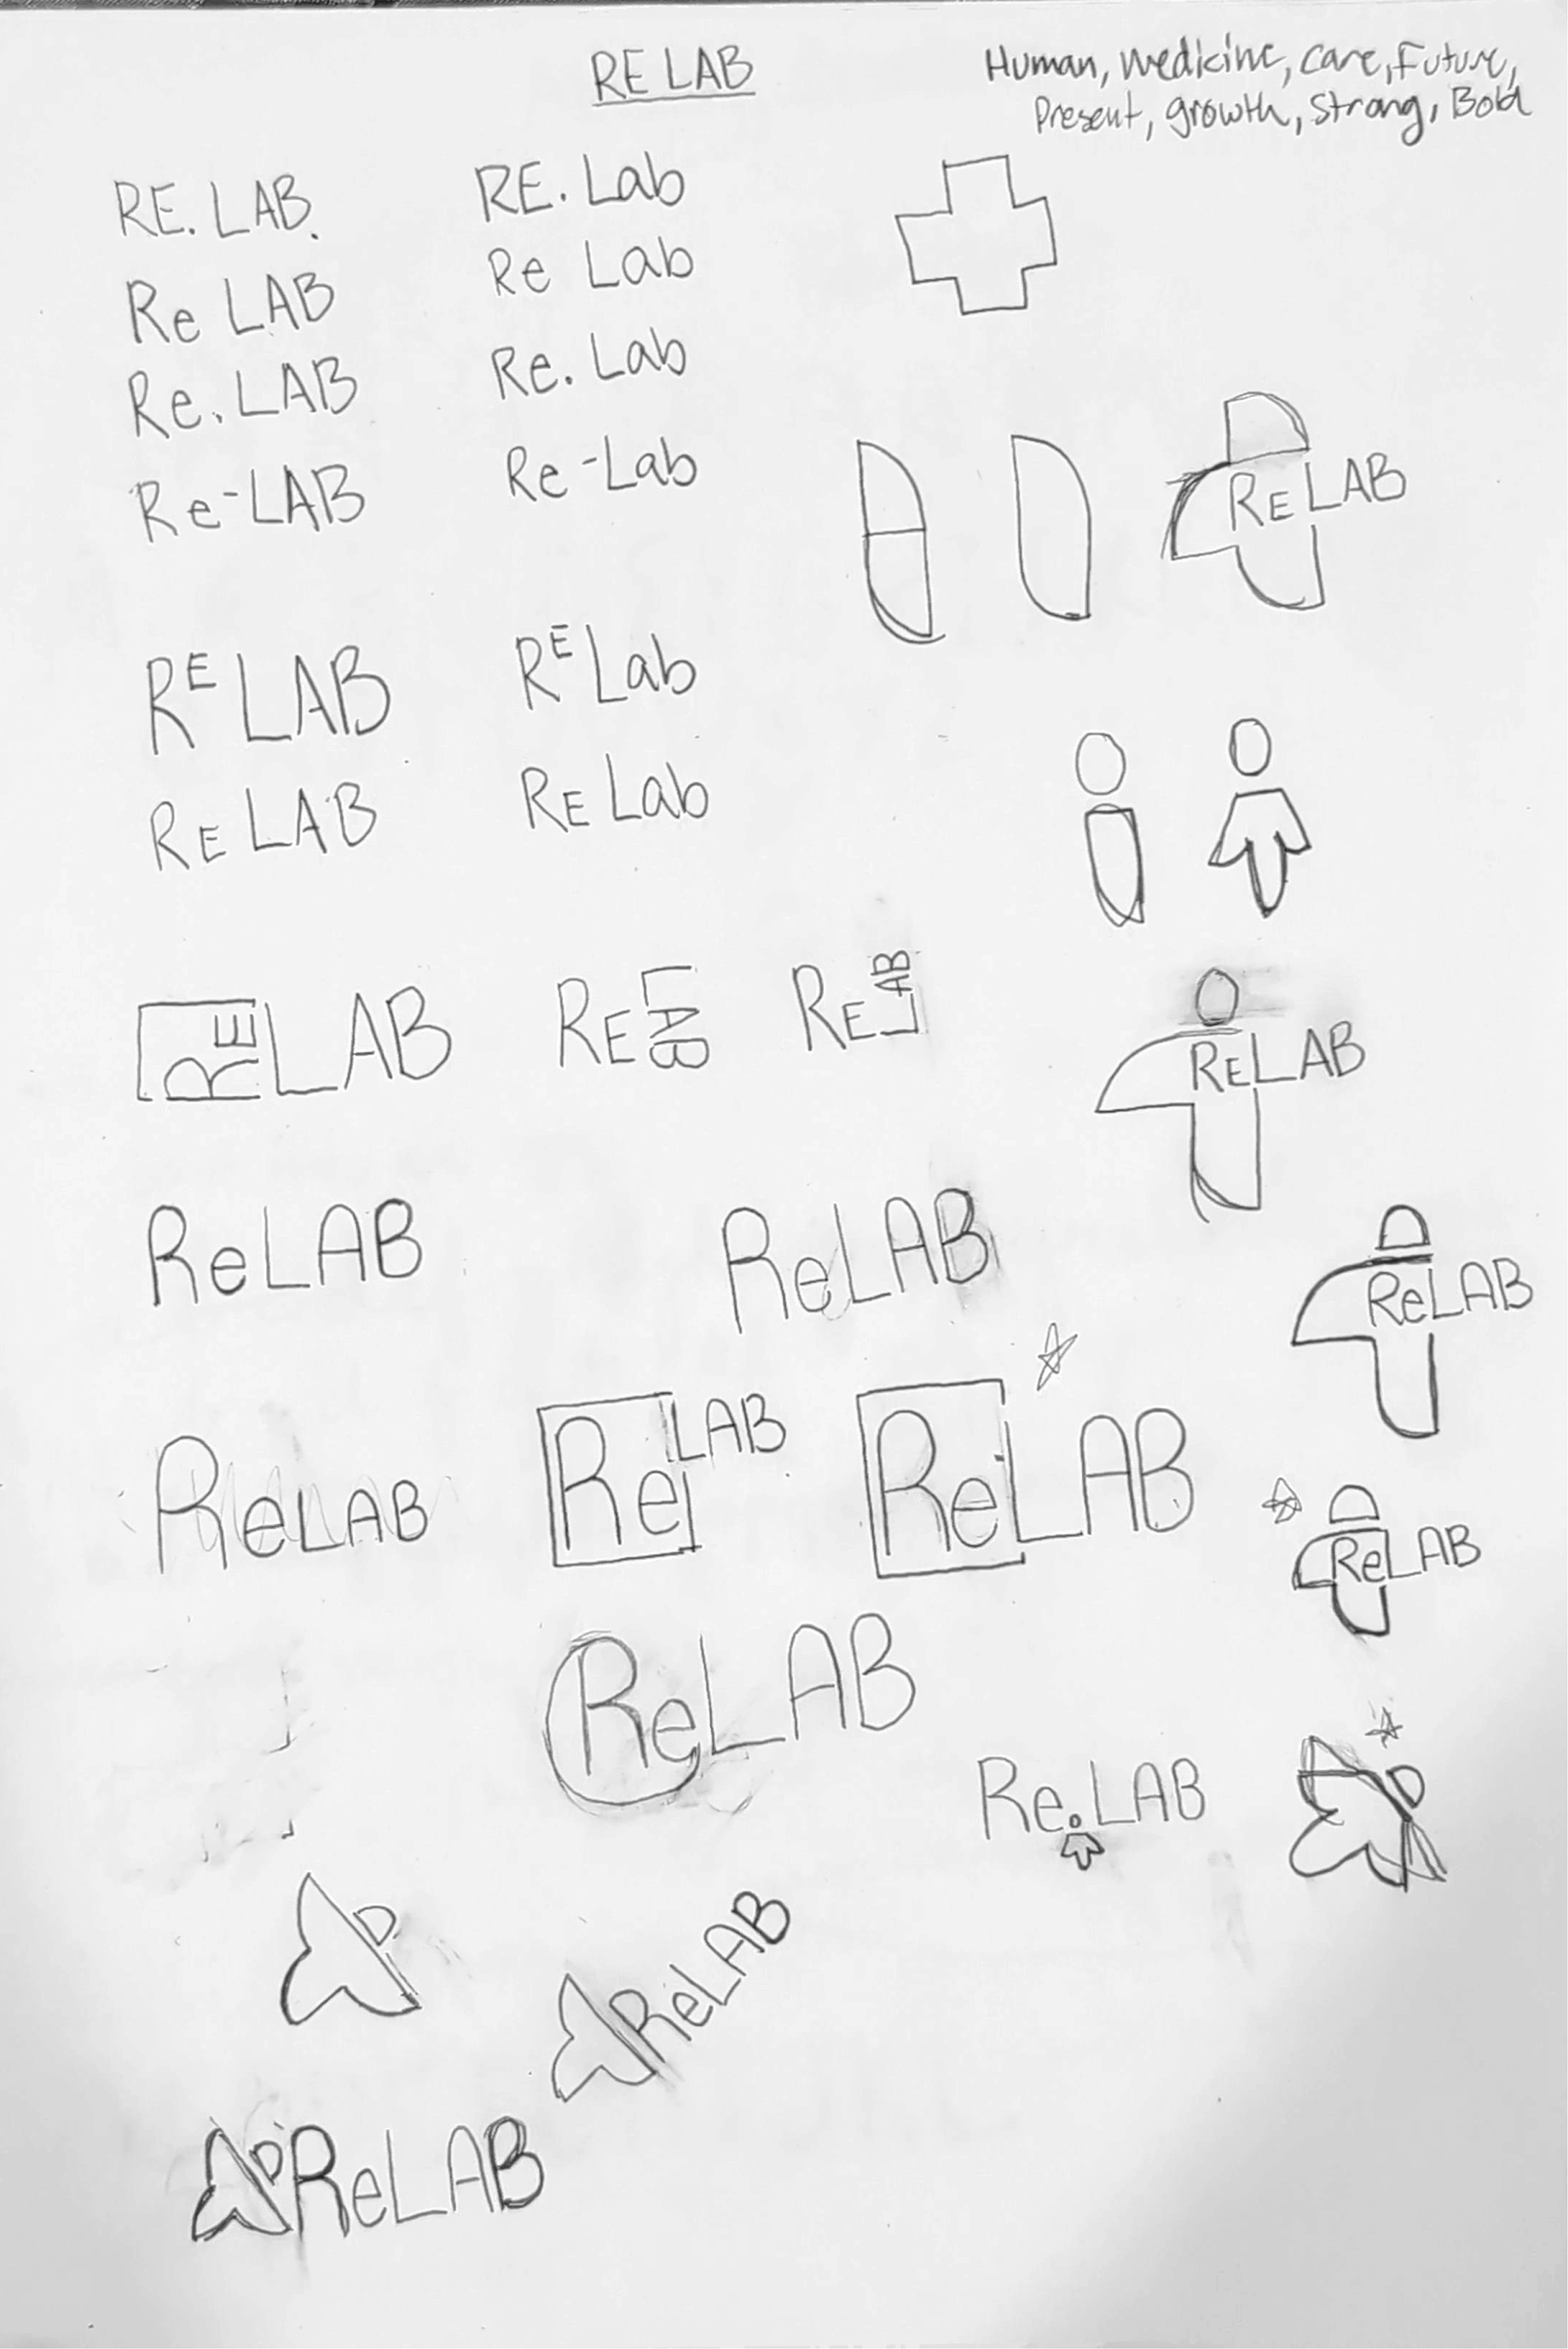 RE LAB
Human, medicine, care, Future,
Present, growth, Strong, Bold
RE. LAB.
RE. Lab
Re LAB
Re Lab
Re. LAB
Re. Lab
Re-LAB
Re-Lab
RE LAB
RE LAB
RE Lab
RE LAB
RE Lab
RE LAB
RE LAB
RE LAB
RE LAB
ReLAB
ReLAB
ReLAB
ReLAB
Re LAB
ReLAB
ReLAB
ReLAB
Re.LAB
ReLAB
ReLAB